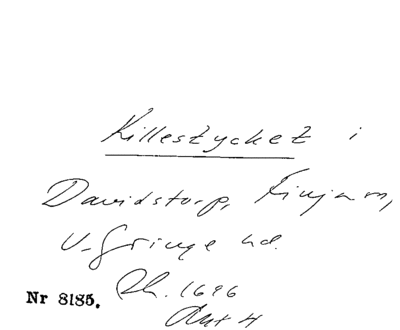 Killestycket i
Davidstorp, Finja sn,
V. Göinge hd.
Nr 8185. Rh. 1696
Akt 4